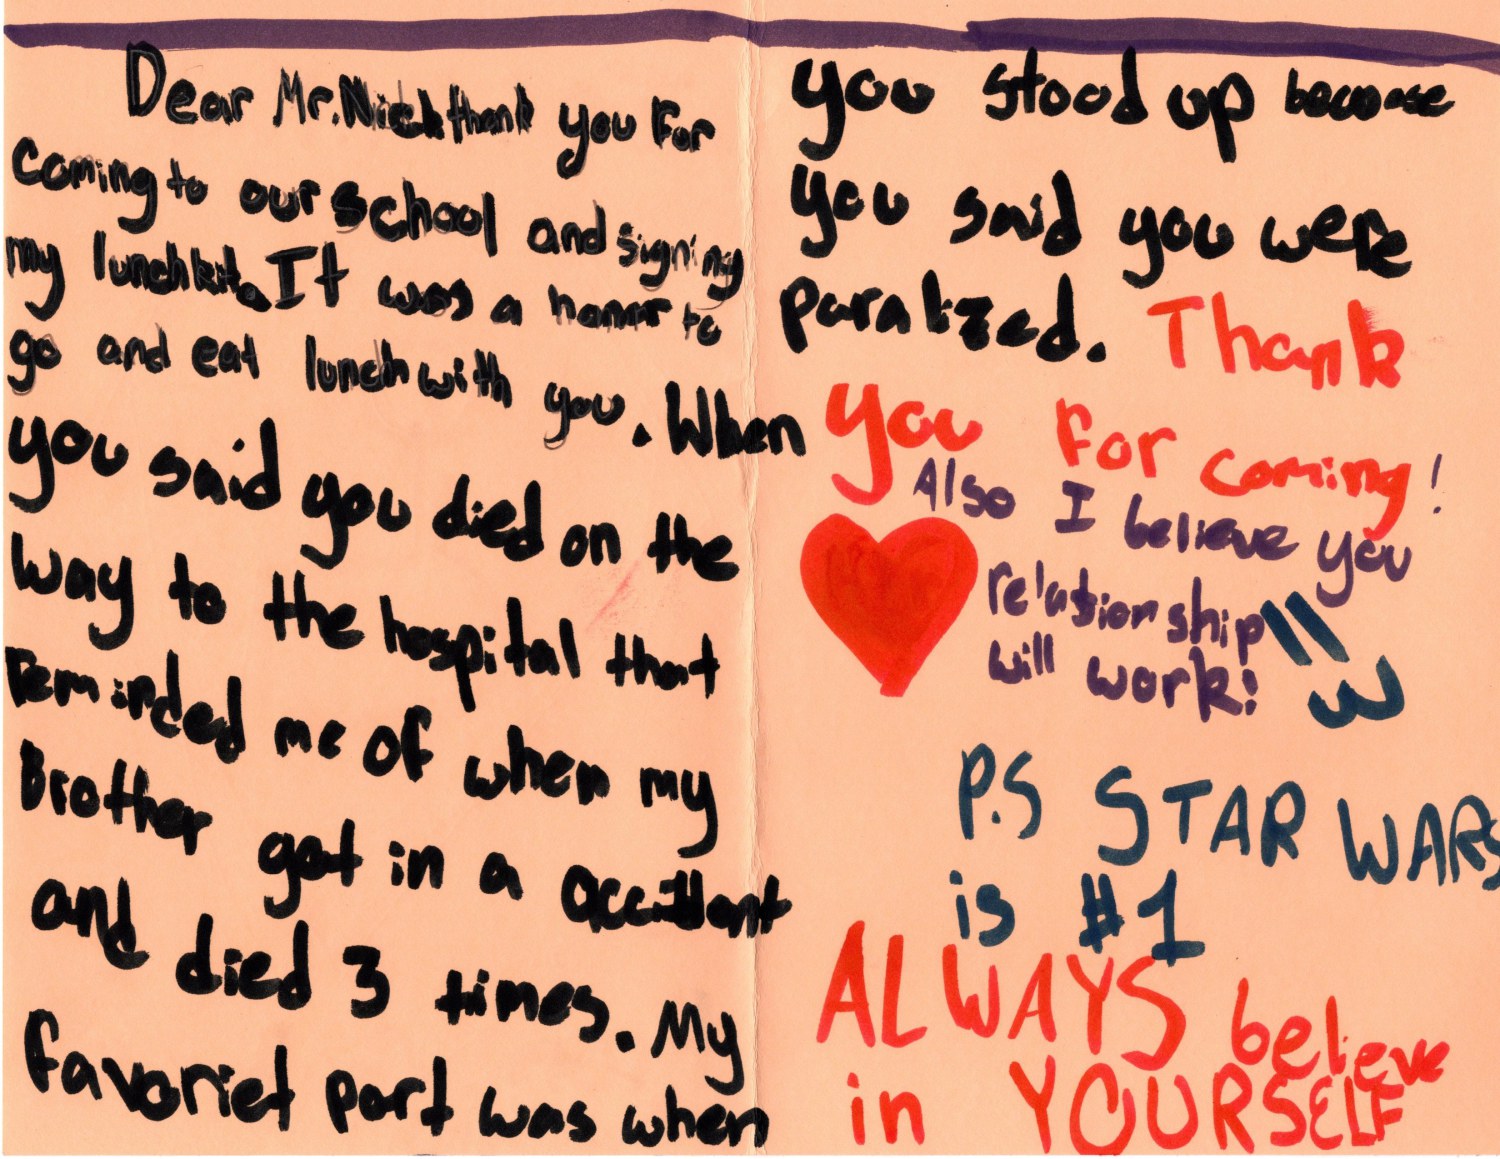 Dear Mr. Nick thank you For
coming to our school and signing
my lunchkit. It was a honor to
go and eat lunch with you. When
you said you died on the
way to the hospital that
reminded me of when my
Brother got in a accident
and died 3 times. My
favoriet part was when
you stood up because
you said you were
paralized. Thank
you For coming!
Also I believe you
relationship
will work!
P.S STAR WARS
is #1
ALWAYS believe
in YOURSELF